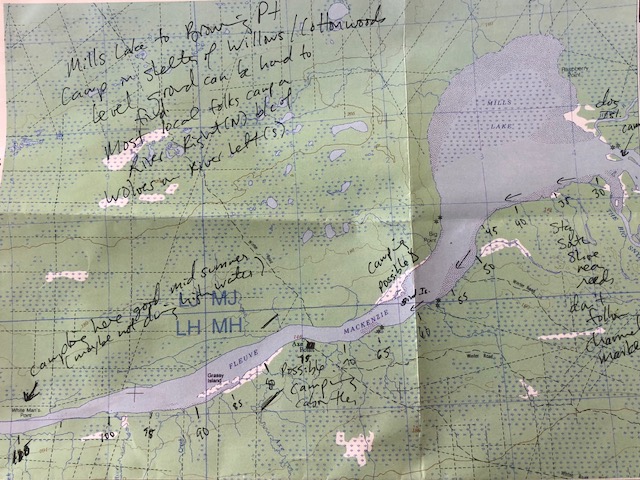 Mills Lake to Browning Pt
Camp in shelter of Willows / Cottonwoods
Level ground can be hard to
find
Most local folks camp on
River Right (N) b/c of
wolves on River left (S)
MILLS
LAKE
dog
camp
30
35
40
45
50
55
60
65
70
75
80
85
90
95
100
Stay
South
Shore
near
reeds
don't
follow
channel
camping
possible
camping here good mid summer
maybe not during high water)
L MJ
LH MH
FLEUVE
MACKENZIE
Grassy
Island
Possible
Camping
White Man's
Point